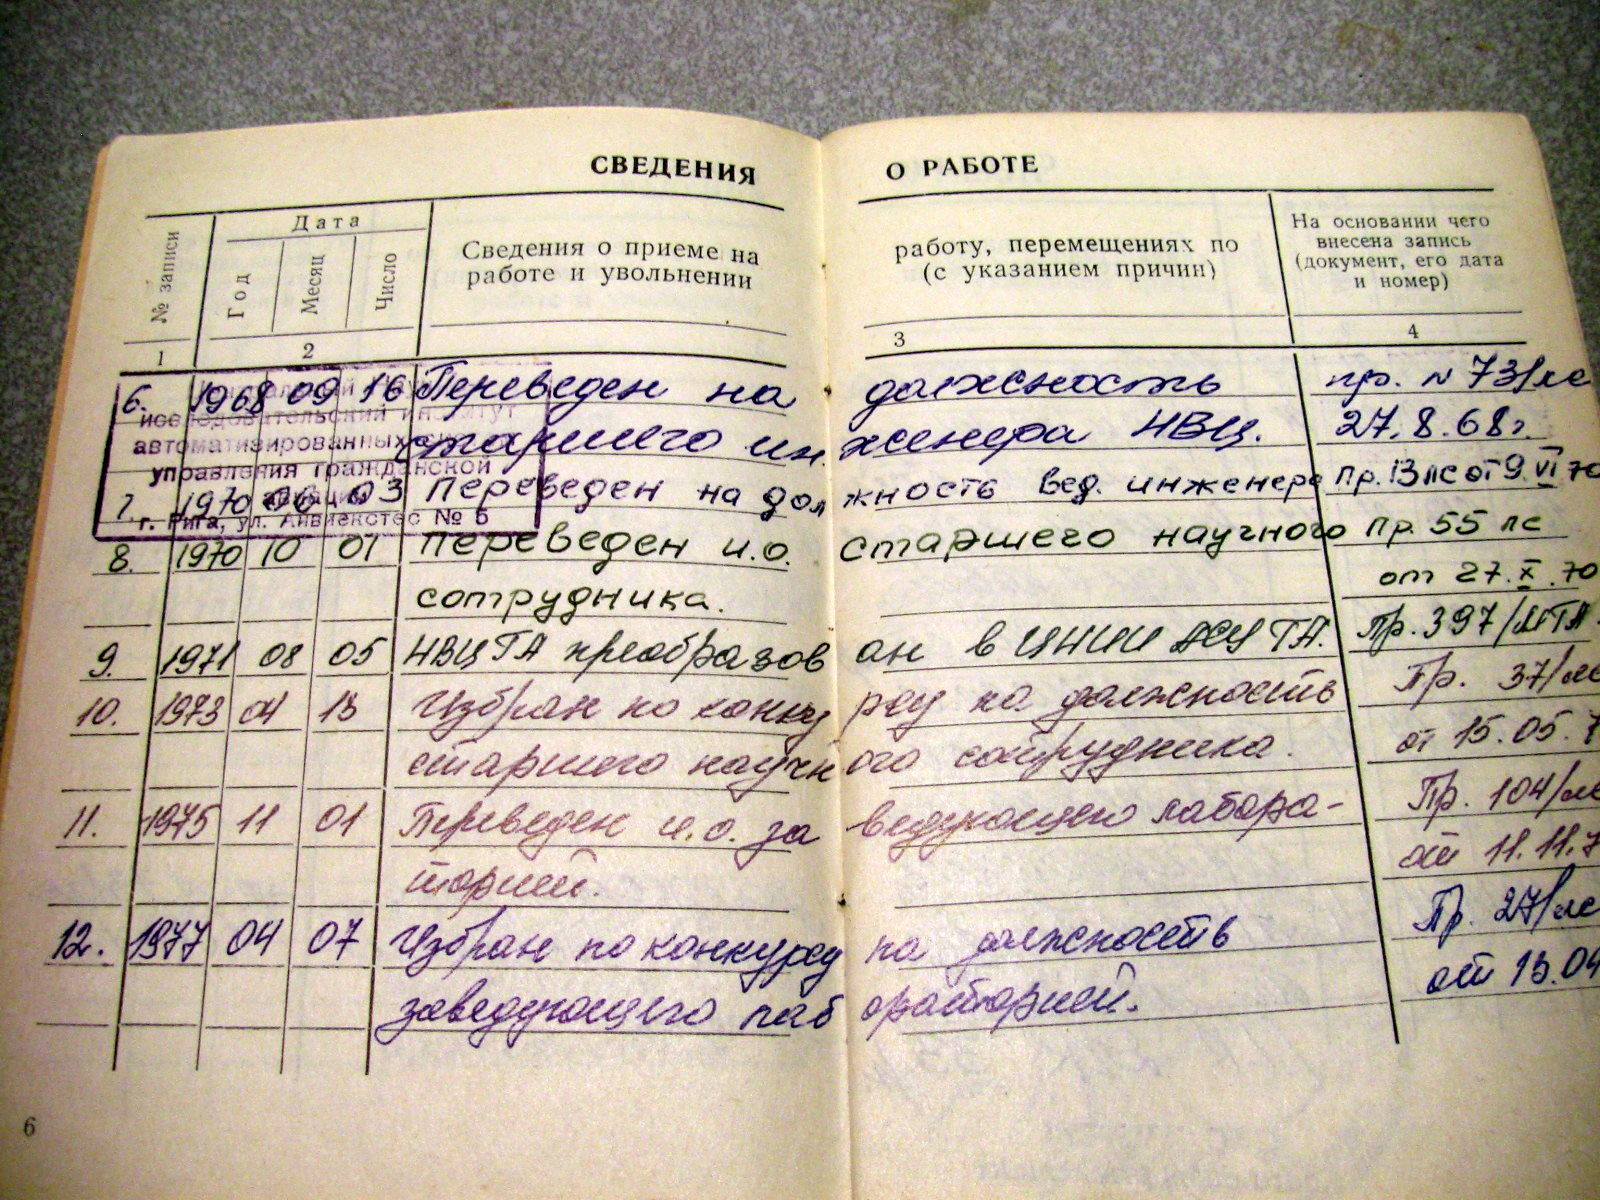 СВЕДЕНИЯ О РАБОТЕ
№ записи
Дата
Год
Месяц
Число
Сведения о приеме на работу, перемещениях по
работе и увольнении (с указанием причин)
На основании чего
внесена запись
(документ, его дата
и номер)
1 2 3 4
6. 1968 09 16 Переведен на должность пр. № 73/лс
старшего инженера НВЦ. 27.8.68г.
исследовательский институт
автоматизированных
управления гражданской
авиации
г. Рига, ул. Айвиекстес № 5
7. 1970 06 03 переведен на должность вед. инженера Пр. 13 лс от 9.VI 70
8. 1970 10 01 переведен и.о. старшего научного Пр. 55 лс
сотрудника. от 27.X.70
9. 1971 08 05 НВЦ ГА преобразован в ЦНИИ АСУ ГА. Пр. 397/МГА
10. 1973 04 13 Избран по конкурсу на должность Пр. 37/лс
старшего научного сотрудника. от 15.05.7
11. 1975 11 01 Переведен и.о. заведующего лабора- Пр. 104/лс
торией. от 11.11.7
12. 1977 04 07 Избран по конкурсу на должность Пр. 27/лс
заведующего лабораторией. от 13.04
6